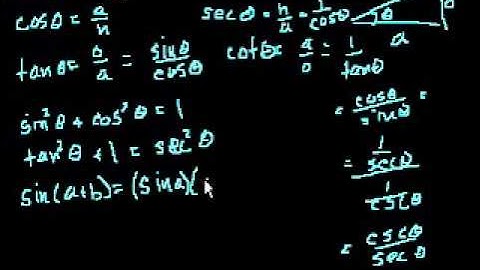 cosθ = a/h
secθ = h/a = 1/cosθ
θ
a
tanθ = o/a = sinθ/cosθ
cotθ = a/o = 1/tanθ
= cosθ/sinθ =
sin²θ + cos²θ = 1
tan²θ + 1 = sec²θ
= (1/secθ)/(1/cscθ)
sin(a+b) = (sin a)(
= cscθ/secθ